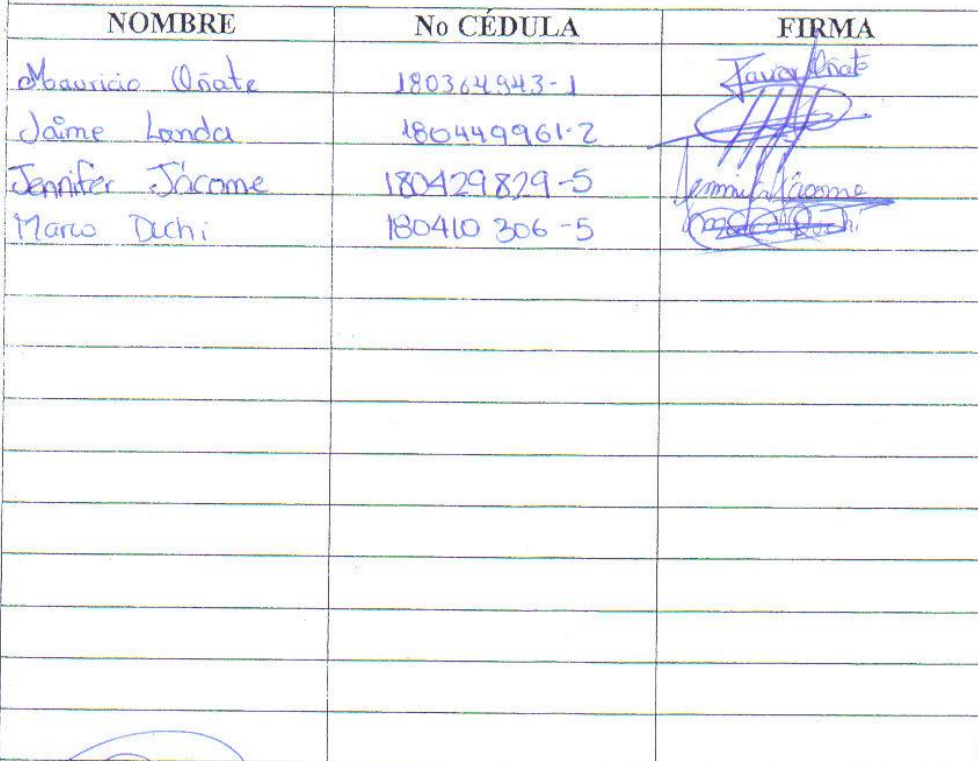 NOMBRE No CÉDULA FIRMA
Mauricio Oñate 180364943-1 Oñate
Jaime Landa 180449961-2
Jennifer Jácome 180429829-5 Jennifer Jácome
Marco 180410306-5